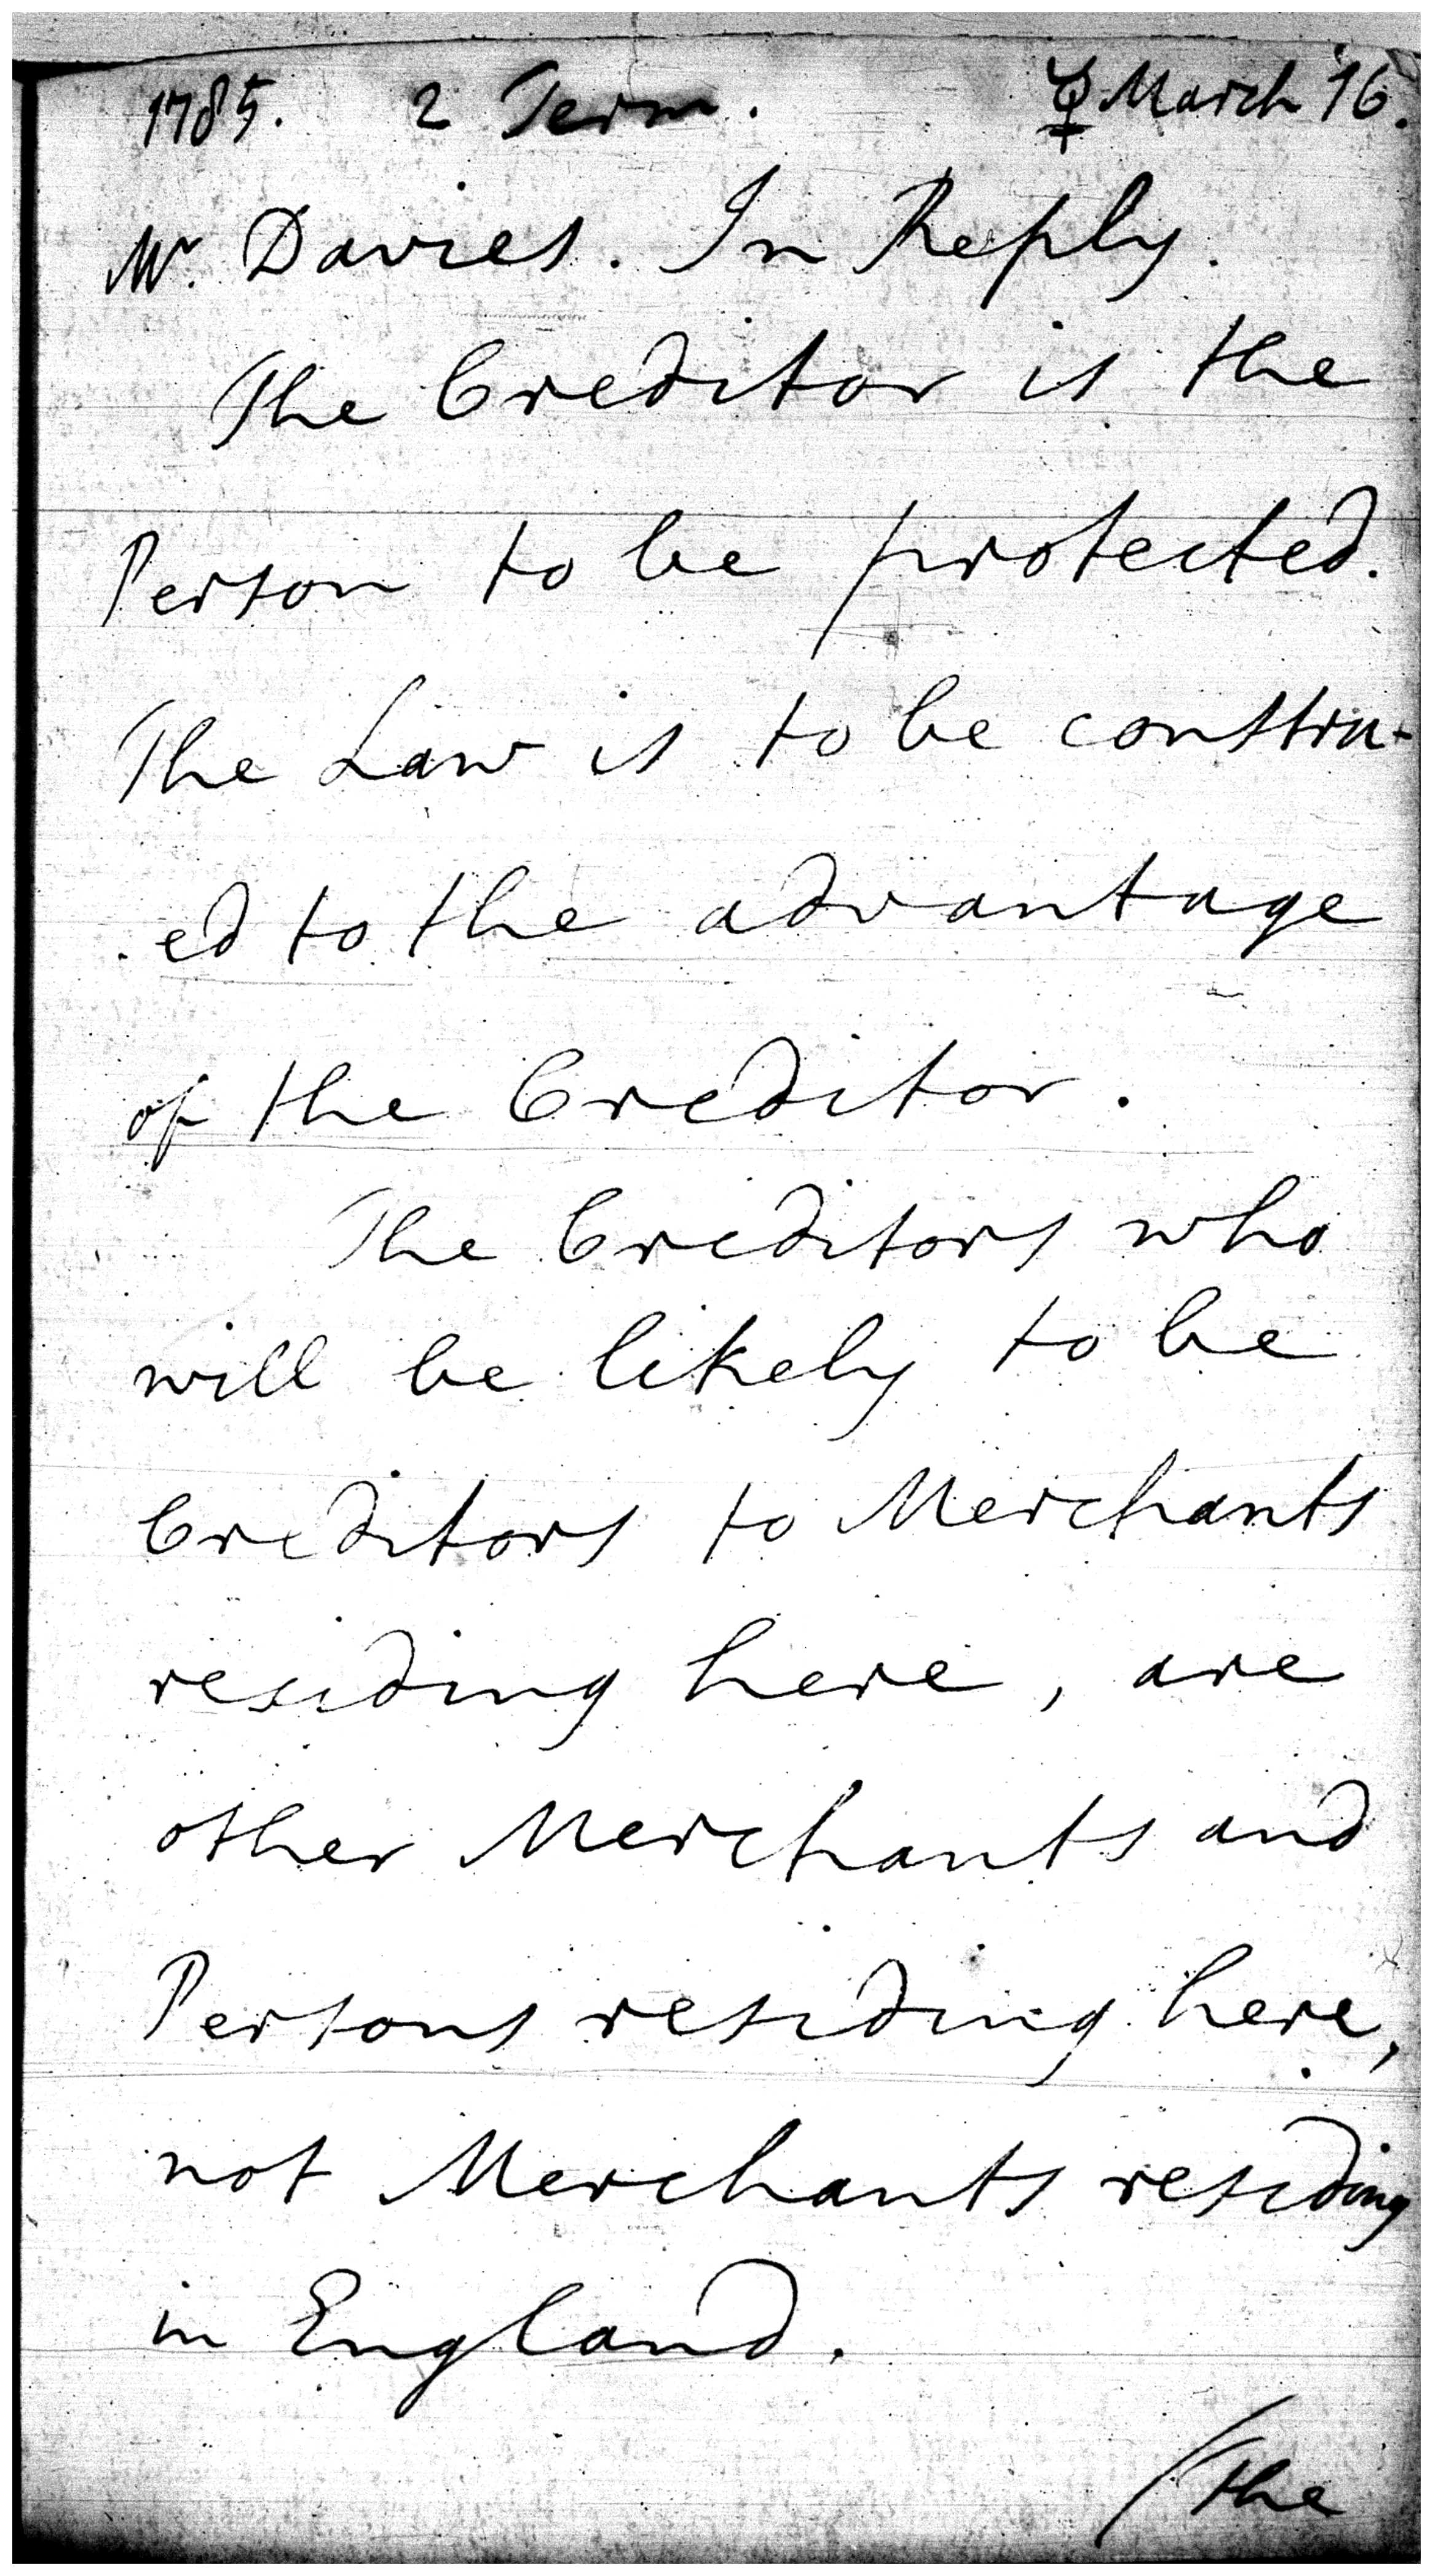 1785. 2 Term. ☿ March 16.
Mr. Davies. In Reply.
The Creditor is the
Person to be protected.
The Law is to be constru-
-ed to the advantage
of the Creditor.
The Creditors who
will be likely to be
Creditors to Merchants
residing here, are
other Merchants and
Persons residing here,
not Merchants residing
in England.
/The